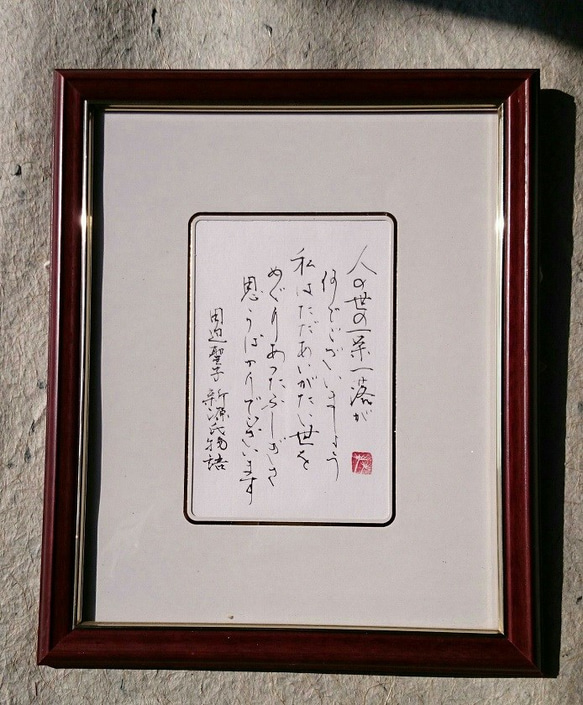 人の世の一栄一落が
何でございましょう
私はただあいがたい世を
めぐりあったふしぎさ
思うばかりでございます
田辺聖子 新源氏物語